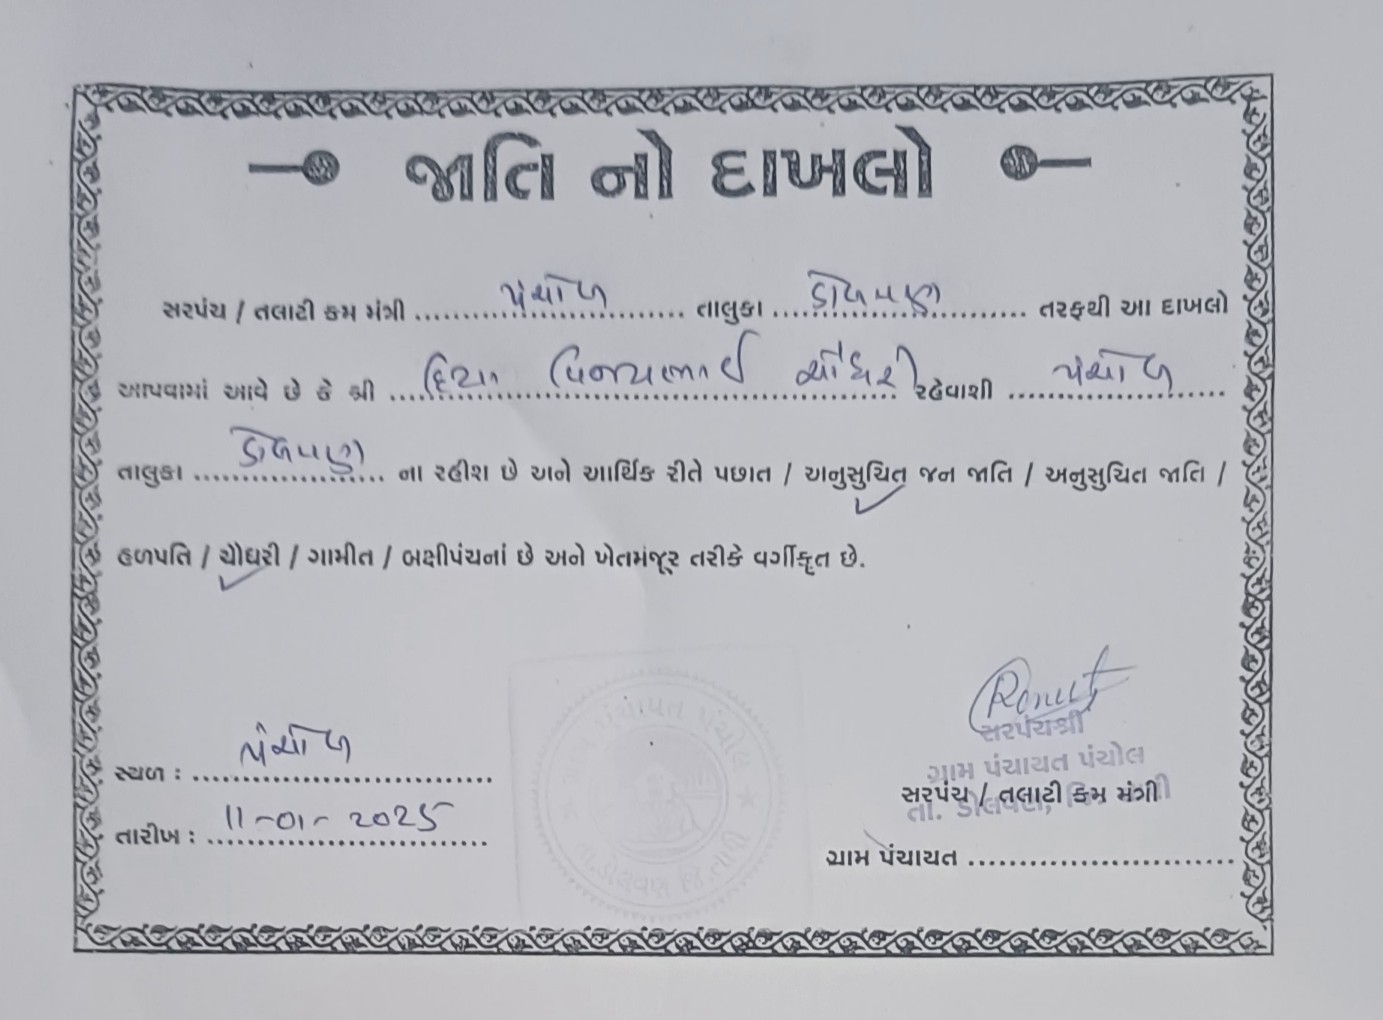 જાતિ નો દાખલો
સરપંચ / તલાટી કમ મંત્રી પંચોળ તાલુકા ડોલવણ તરફથી આ દાખલો
આપવામાં આવે છે કે શ્રી દિયા વિજયભાઈ ચૌધરી રહેવાશી પંચોળ
તાલુકા ડોલવણ ના રહીશ છે અને આર્થિક રીતે પછાત / અનુસુચિત જન જાતિ / અનુસુચિત જાતિ /
હળપતિ / ચૌધરી / ગામીત / બક્ષીપંચનાં છે અને ખેતમંજૂર તરીકે વર્ગીકૃત છે.
સ્થળ : પંચોળ
તારીખ : 11-01-2025
સરપંચશ્રી
ગ્રામ પંચાયત પંચોલ
તા. ડોલવણ,
સરપંચ / તલાટી કમ મંત્રી
ગ્રામ પંચાયત
ગ્રામ પંચાયત પંચોલ
તા.ડોલવણ જિ.તાપી